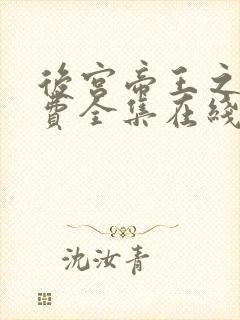 後宫帝王之
費全集在綫
沈汝青